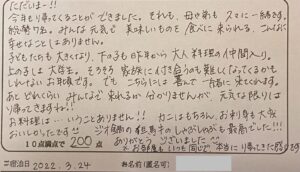 ただいまー!!
今年も帰ってくることができました。それも、母や弟も久々に一緒です。
総勢7名。みんな元気で美味しいものを食べに来られる、こんなに
幸せなことはありません。
子どもたちも大きくなり、下の子も昨年から大人料理の仲間入り。
上の子は大学生。そろそろ家族に付き合うのも難しくなってくるかも
しれないお年頃です。でもこちらには喜んで一緒に来てくれます。
あとどれくらいみんなで来れるか分かりませんが、元気な限りは
帰ってきますね!!
お料理は…いうことありません!!カニはもちろん、お刺身も大変
おいしかったです
しゃぶしゃぶも最高でした!!!
ありがとうございました
お部屋もいつも同じで、本当に帰ってきた感
10点満点で 200 点
ご宿泊日 2022.3.24
お名前(匿名可)